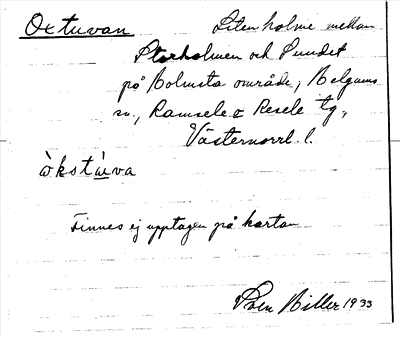 Oxtuvan Liten holme mellan
Storholmen och Sundet
på Bolmsta område, Helgums
sn., Ramsele o Resele tg,
Västernorrl. l.
ò̀kstùva
Finnes ej upptagen på kartan
Sven Hiller 1933